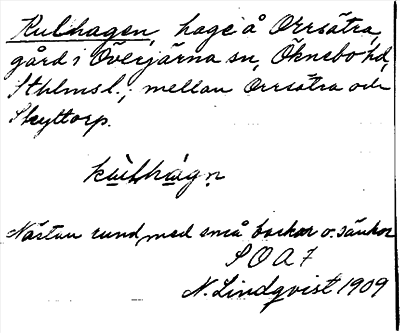 Kulhagen, hage å Orrsätra,
gård i Överjärna sn, Öknebo hd,
Sthlms l., mellan Orrsätra och
Skyttorp.
kùlhágn
Nästan rund, med små backar o. sänkor
S O A F
N. Lindqvist 1909